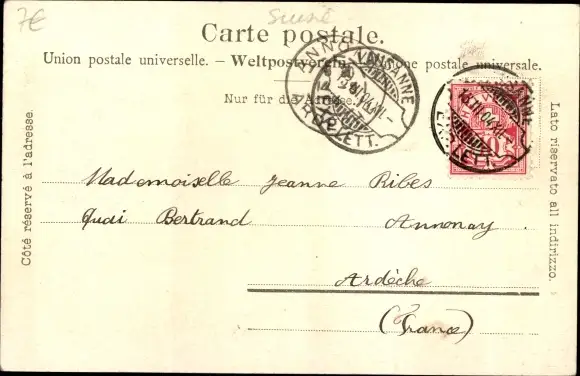 7€
Suisse
Carte postale.
Union postale universelle. – Weltpostverein. – Unione postale universale.
Nur für die Adresse.
LAUSANNE
EXP. LETT.
Côté réservé à l'adresse.
Lato riservato all indirizzo.
Mademoiselle Jeanne Ribes
Quai Bertrand Annonay
Ardèche
(France)